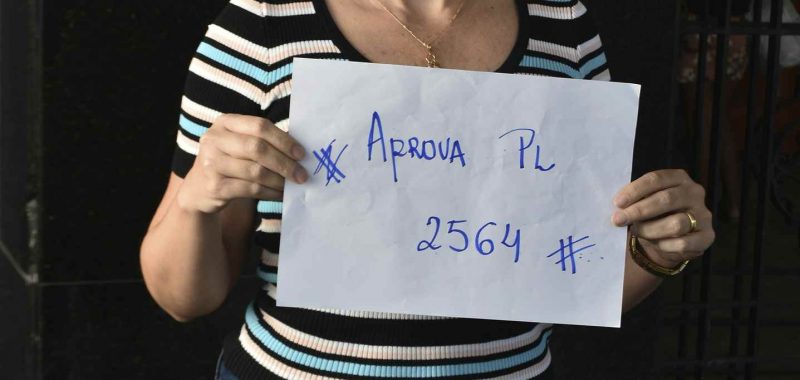 # APROVA PL
2564 #